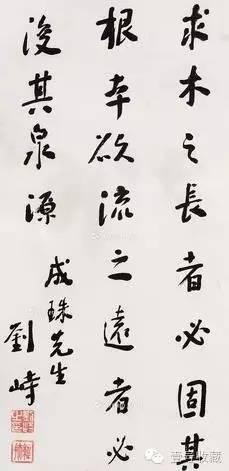 求木之長者必固其
根本欲流之遠者必
浚其泉源
成珠先生
劉峙
壹号收藏